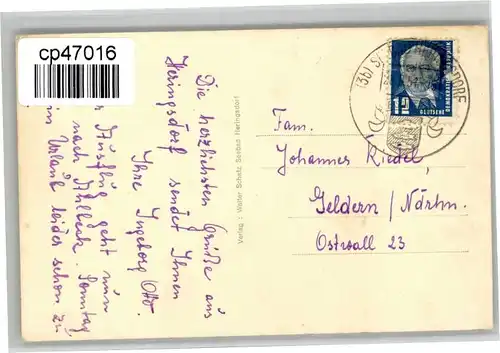 cp47016
Die herzlichsten Grüße aus
Heringsdorf sendet Ihnen
Ihre Ingeborg Otto.
Ausflug geht nun
nach Ahlbeck. Sonntag
Urlaub leider schon zu
Verlag: Walter Schatz, Seebad Heringsdorf
(3b)
12
DEUTSCHE
Fam.
Johannes Riedel
Geldern/Ndrhn.
Ostwall 23